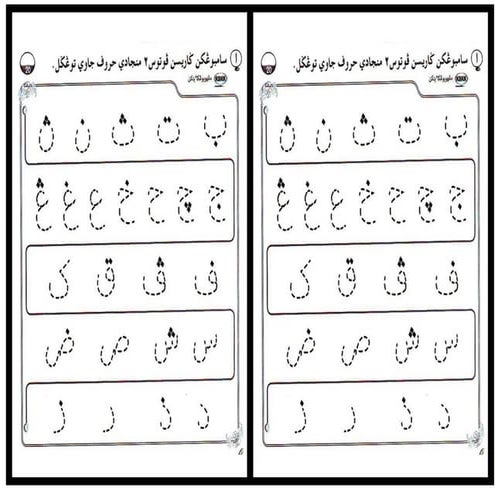 سامبوڠکن ݢاريسن ڤوتوس٢ منجادي حروف جاوي توڠݢل.
ب ت ث ن ڽ
ج چ ح خ ع غ ڠ
ف ڤ ق ک
س ش ص ض
د ذ ر ز
سامبوڠکن ݢاريسن ڤوتوس٢ منجادي حروف جاوي توڠݢل.
ب ت ث ن ڽ
ج چ ح خ ع غ ڠ
ف ڤ ق ک
س ش ص ض
د ذ ر ز